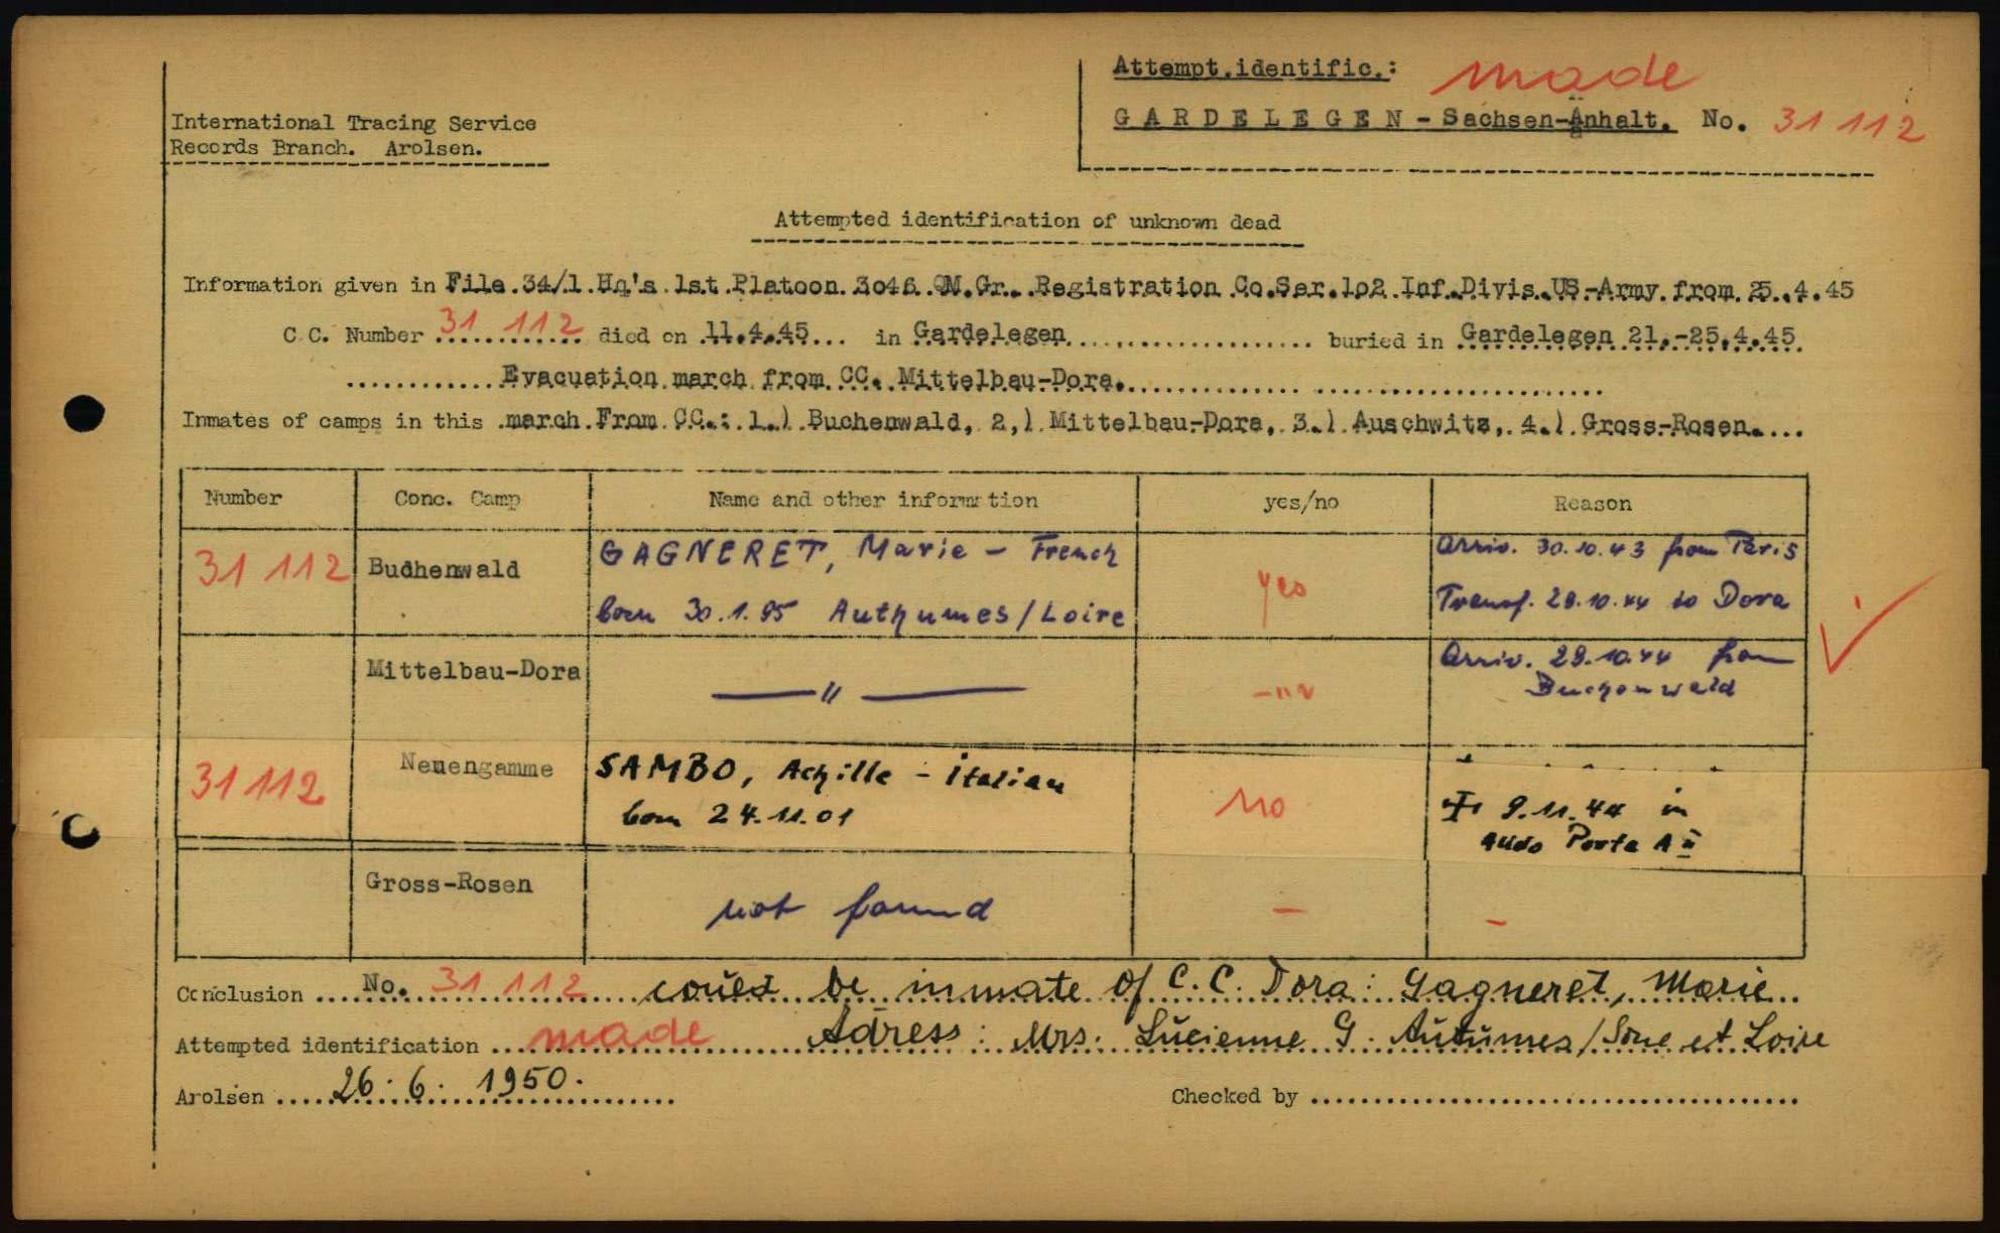 Attempt.identific.: made
GARDELEGEN - Sachsen-Anhalt. No. 31 112
International Tracing Service
Records Branch. Arolsen.
Attempted identification of unknown dead
Information given in File 34/1 Hq's 1st Platoon 3046 QM.Gr. Registration Co.Ser.102 Inf.Divis.US.-Army from 25.4.45
C.C. Number 31 112 died on 11.4.45 in Gardelegen buried in Gardelegen 21.-25.4.45
Evacuation march from CC. Mittelbau-Dora.
Inmates of camps in this march From CC.: 1.) Buchenwald, 2,) Mittelbau-Dora, 3.) Auschwitz, 4.) Gross-Rosen.
Number Conc. Camp Name and other information yes/no Reason
31 112 Budhenwald GAGNERET, Marie - French yes Arriv. 30.10.43 from Paris
born 30.1.95 Authumes/Loire Transf. 29.10.44 to Dora
Mittelbau-Dora — " — - " - Arriv. 29.10.44 from
Buchenwald
31 112 Neuengamme SAMBO, Achille - Italian no 9.11.44 in
born 24.11.01 Porta
Gross-Rosen not found - -
Conclusion No. 31 112 could be inmate of C.C. Dora: Gagneret, Marie
Attempted identification made Adress: Mrs. Lucienne G. Autumes/Sone et Loire
Arolsen 26.6.1950. Checked by